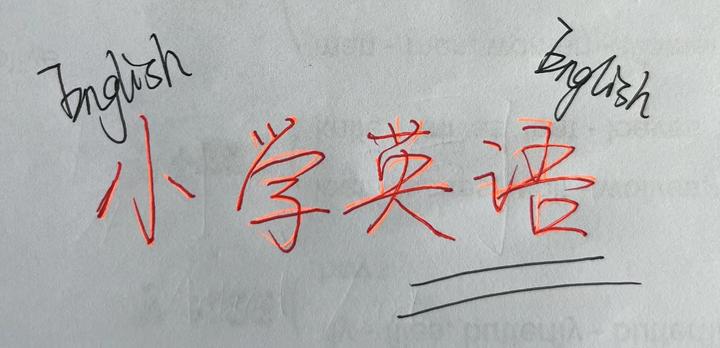 English English
小学英语